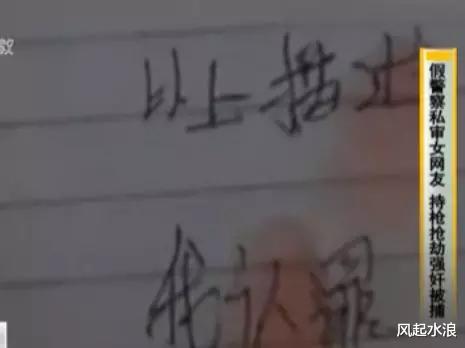 教
以上描述
我认罪
假警察私审女网友 持枪抢劫强奸被捕
风起水浪